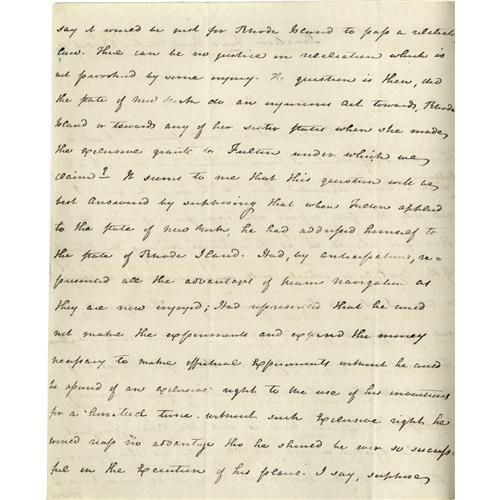 say it would be not for Rhode Island to pass a retaliat
law. There can be no justice in retaliation which is
not provoked by some injury. The question is then, did
the state of New York do an injurious act towards, Rhode
Island or towards any of her sister states when she made,
the exclusive grants to Fulton under which we,
claim? It seems to me that this question will be,
best answered by supposing that when Fulton applied
to the state of New York, he had addressed himself to
the state of Rhode Island. Had, by anticipation, re=
presented all the advantages of steam navigation as
they are now enjoyed; Had represented that he could
not make the experiments and expend the money
necessary to make effectual Experiments without he could
be assured of an exclusive right to the use of his inventions
for a limited time. without such Exclusive right he
would reap no advantage tho he should be ever so success=
ful in the Execution of his plans. I say, suppose,